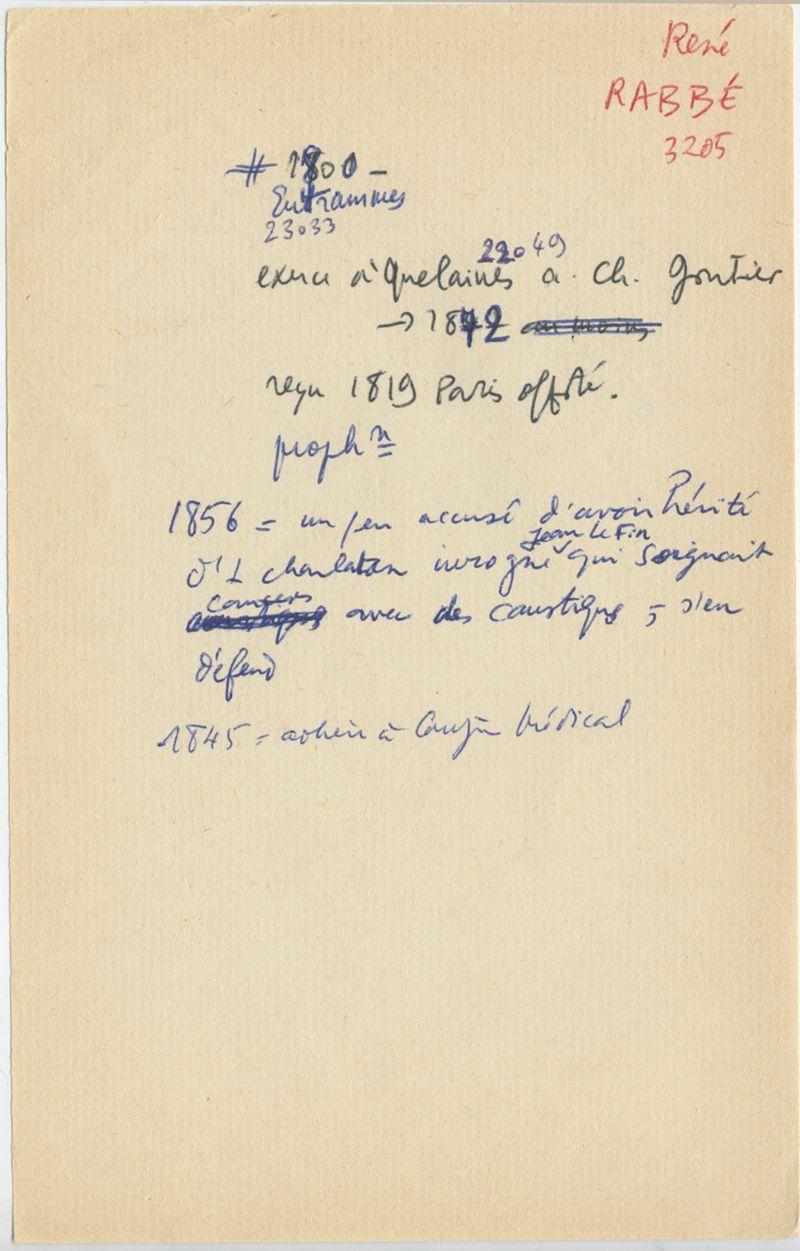 René
RABBÉ
3205
# 1800 –
Entrammes
23033
22049
exerce à Quelaines a. Ch. Gontier
→ 1842 au moins
reçu 1819 Paris off. sté.
proph n
1856 = un peu accusé d'avoir hérité
Jean Le Fin
d'1 charlatan ivrogne qui soignait
cancers
avec des caustiques ; s'en
défend
1845 = adhère à Congrès Médical